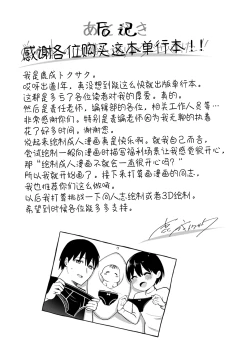 后记
感谢各位购买这本单行本!!
我是鹿成トクサク。
哎呀出道1年,真没想到这么快就出版单行本。
这都是多亏了各位读者对我的厚爱。真的。
然后是责任老师,编辑部的各位,相关工作人员等…
非常感谢你们,特别是责编老师因为我无聊的执着
花了好多时间,谢谢您。
说起来绘制成人漫画真是快乐啊。就我自己而言,
尝试绘制一般向漫画时描写福利场景让我感觉很开心,
那“绘制成人漫画不就会一直很开心吗?”
所以我就开始画了。接下来打算画漫画的同志,
我也推荐你们这么做哦。
以后我打算挑战一下同人志绘制或者3D绘制,
希望到时候各位能多多支持。